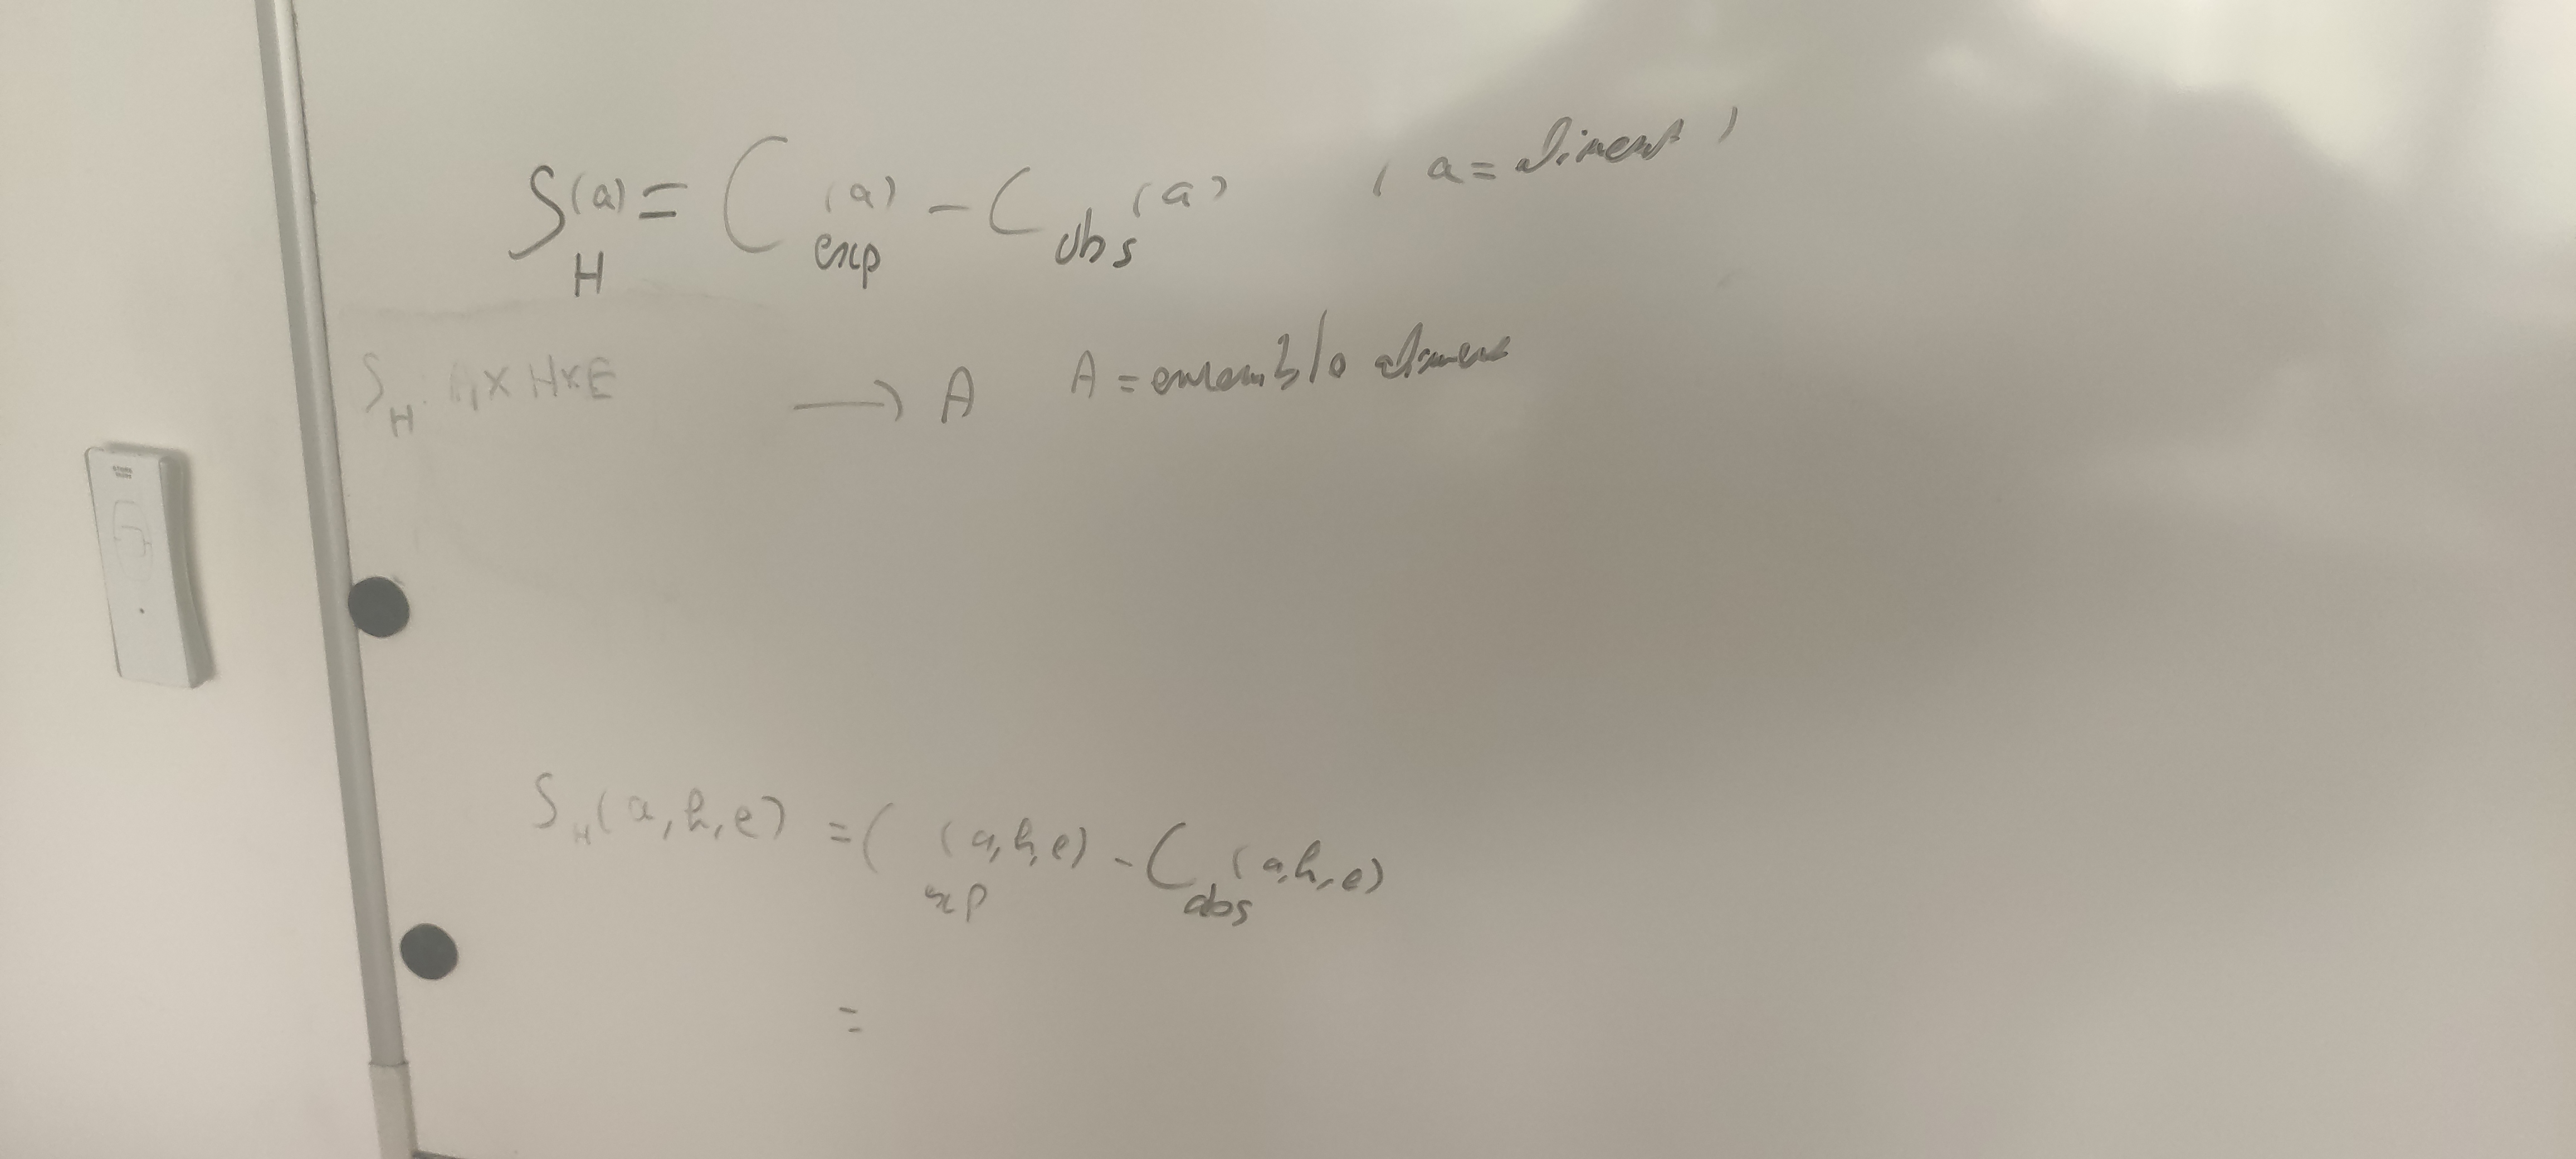 S_H(a) = C_exp(a) - C_obs(a) (a = aliment)
S_H: A x H x E → A A = ensemble aliments
S_H(a, h, e) = C_exp(a, h, e) - C_obs(a, h, e)
=